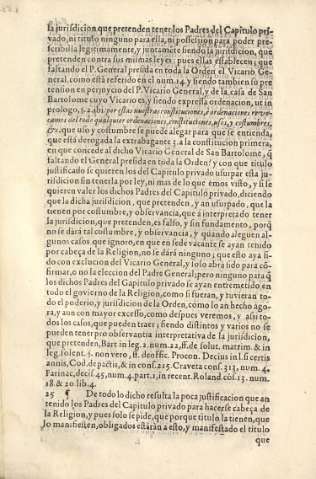 la jurisdicion que pretenden tener los Padres del Capitulo pri-
vado, ni titulo ninguno para ella, ni posicision para poder pres-
cribilla legitimamente, y juntamẽte siendo la jurisdicion, que
pretenden contra sus mismas leyes, pues ellas establecen, que
faltando el P. General presida en toda la Orden el Vicario Ge-
neral, como està referido en el num. 14. y siendo tambien su pre
tension en perjuyzio del P. Vicario General, y de la casa de San
Bartolome cuyo Vicario es, y siendo expressa ordenacion, ut in
prologo, §. 2. ibi, por estas nuestras constituciones, è ordenaciones revo-
camos del todo qualquier ordenaciones, constituciones, usos, y costumbres,
&c. que uso y costumbre se puede alegar para que se entienda,
que està derogada la extrabagante 3. a la constitucion primera,
en que concede al dicho Vicario General de San Bartolome, q̃
faltando el General presida en toda la Orden? y con que titulo
justificado se quieren los del Capitulo privado usurpar esta ju-
risdicion sin tenerla por ley, ni mas de lo que emos visto, y si se
quieren valer los dichos Padres del Capitulo privado, diciendo
que la dicha jurisdicion, que pretenden, y an usurpado, que la
tienen por costumbre, y observancia, que à interpretado tener
la jurisdicion, que pretenden, es falso, y sin fundamento, porq̃
no se darà tal costumbre, y observancia, y quando aleguen al-
gunos casos, que ignoro, en que en sede vacante se ayan tenido
por cabeça de la Religion, no se darà ninguno, que esto aya si-
do con exclusion del Vicario General, y solo abra sido para cõ-
firmar, o no la eleccion del Padre General, pero ninguno para q̃
los dichos Padres del Capitulo privado se ayan entremetido en
todo el govierno de la Religion, como si fueran, y tuvieran to-
do el poderio, y jurisdicion de la Orden, como lo an hecho ago-
ra, y aun con mayor excesso, como despues veremos, y assi to-
dos los casos, que pueden traer, siendo distintos y varios no se
pueden tener por observantia interpretativa de la jurisdicion,
que pretenden, Bart in leg. 2. num. 22, ff. de solut. matrim. & in
leg. solent. j. non vero, ff. de offic. Procon. Decius in l. si certis
annis, Cod. de pactis, & in cons. 225. Craveta cons. 313. num. 4.
Farinac. decis. 45, num. 4. part. 1. in recent. Roland cõs. 13. num.
18. & 20. lib. 4.
25 ¶ De todo lo dicho resulta la poca justificacion que an
tenido los Padres del Capitulo privado para hacerse cabeça de
la Religion, y pues solo se pide, que porque titulo la tienen, que
lo manifiesten, obligados estàran a esto, y manifestado el titulo
que